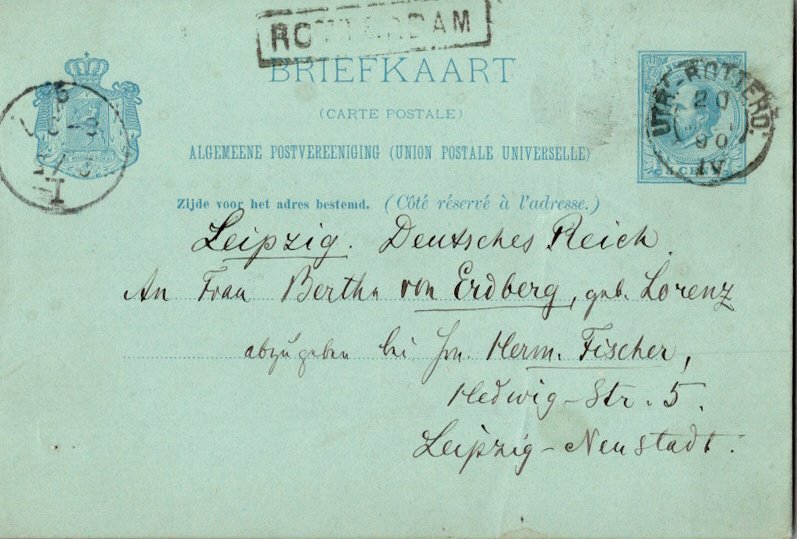 ROTTERDAM
BRIEFKAART
(CARTE POSTALE)
ALGEMEENE POSTVEREENIGING (UNION POSTALE UNIVERSELLE)
Zijde voor het adres bestemd. (Côté réservé à l'adresse.)
UTRT-ROTTERD:
20
90
IV
5 CENT
5
I
Leipzig. Deutsches Reich
An Frau Bertha von Erdberg, geb. Lorenz
abzugeben bei Hrn. Herm. Fischer,
Hedwig-Str. 5.
Leipzig-Neustadt.